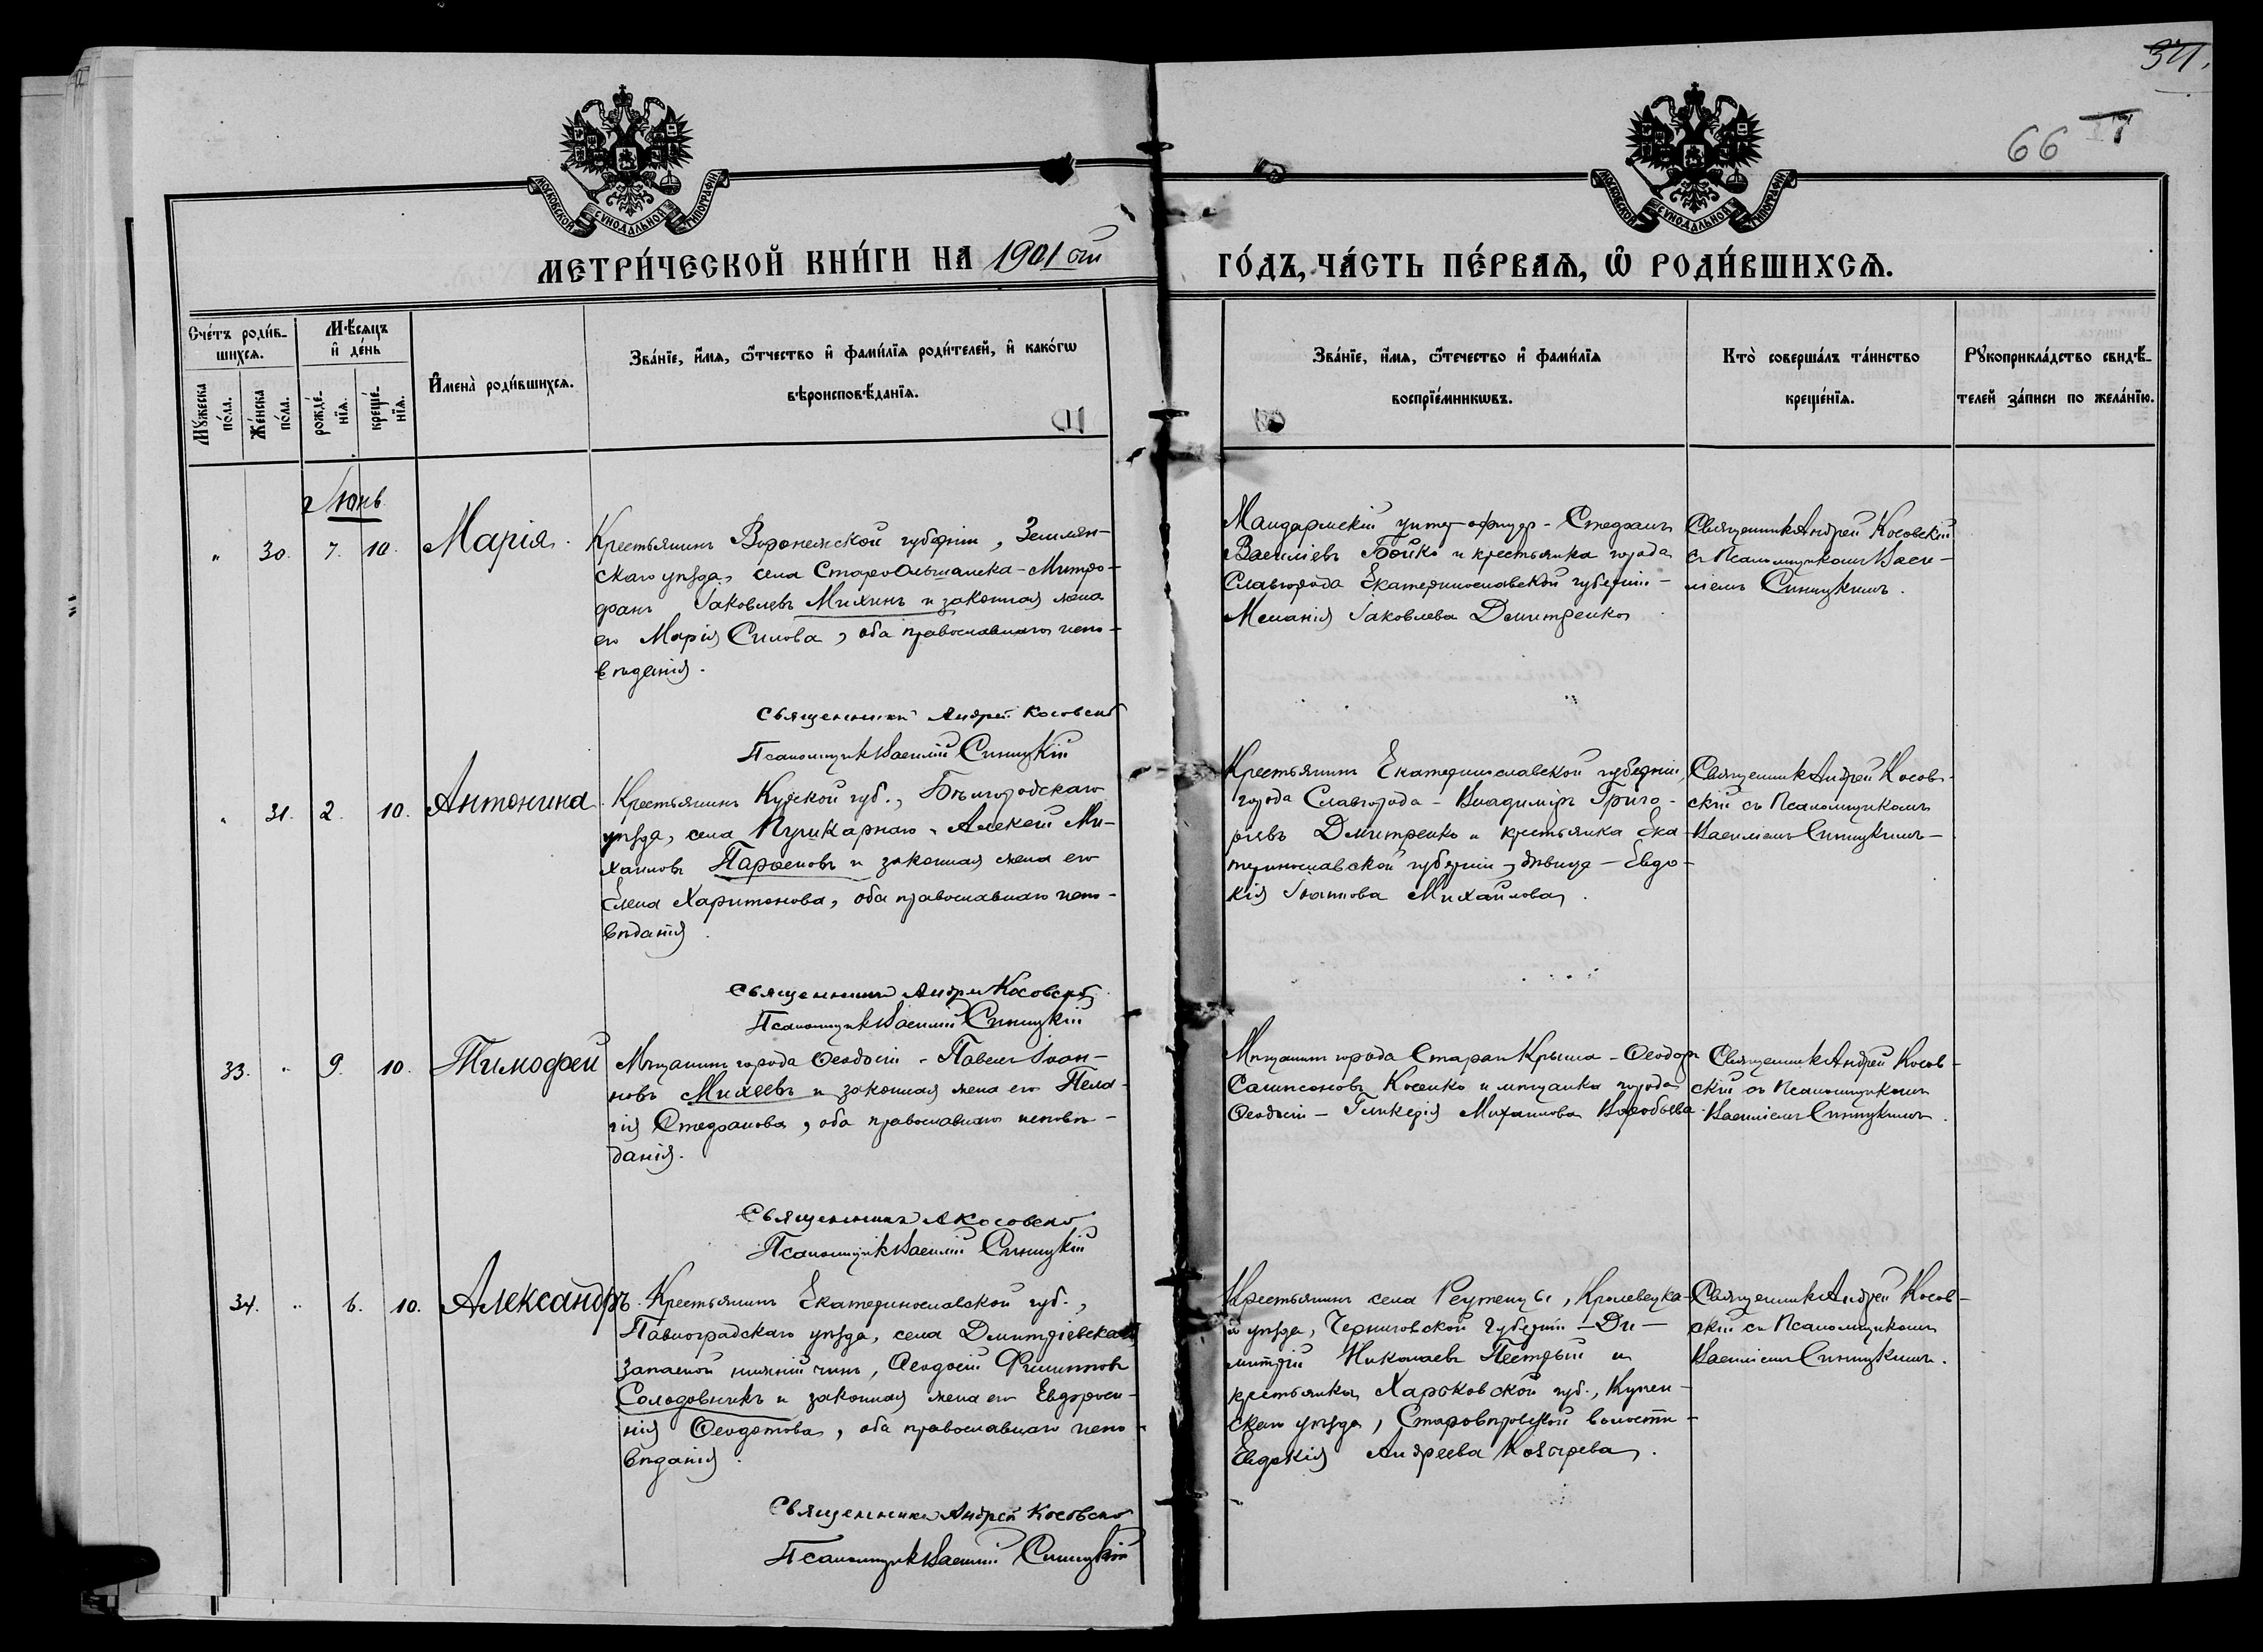 34.
66
МОСКОВСКОЙ СУНОДАЛЬНОЙ ТИПОГРАФІИ
МОСКОВСКОЙ СУНОДАЛЬНОЙ ТИПОГРАФІИ
МЕТРИ́ЧЕСКОЙ КНИ́ГИ НА 1901 ой
ГО́ДЪ, ЧА́СТЬ ПЕ́РВАѦ, Ѡ РОДИ́ВШИХСѦ.
Сче́тъ роди́в-
шихсѧ.
Мꙋжеска по́ла.
Же́нска по́ла.
Мѣ́сѧцъ и де́нь
рожде́-нїѧ.
креще́-нїѧ.
Имена̀ роди́вшихсѧ.
Зва́нїе, и́мѧ, ѻ́тчество и фами́лїѧ роди́телей, и како́гѡ
вѣроисповѣ́данїѧ.
Зва́нїе, и́мѧ, ѻ́течество и фами́лїѧ
воспрїе́мникѡвъ.
Кто̀ соверша́лъ та́инство
креще́нїѧ.
Рꙋкоприкла́дство свидѣ́-
телей за́писи по жела́нїю.
Іюнь
" 30. 7. 10. Марія.
Крестьянинъ Воронежской губерніи, Землян-
скаго уѣзда, села СтароОльшанска - Митро-
фанъ Іаковлевъ Михинъ и законная жена
его Марія Силова, оба православнаго испо-
вѣданія.
Священникъ Андрей Косовскій
Псаломщикъ Василій Синицкій
унтеръ-офицеръ - Стефанъ
Василіевъ Бойко и крестьянка города
Славгорода Екатеринославской губерніи -
Меланія Іаковлева Дмитренко
Священникъ Андрей Косовскій
съ Псаломщикомъ Васи-
ліемъ Синицкимъ.
" 31. 2. 10. Антонина
Крестьянинъ Курской губ., Бѣлгородскаго
уѣзда, села Пушкарнаго - Алексій Ми-
хаиловъ Парѳеновъ и законная жена его
Елена Харитонова, оба православнаго испо-
вѣданія.
Священникъ Андрей Косовскій
Псаломщикъ Василій Синицкій
Крестьянинъ Екатеринославской губерніи,
города Славгорода - Владиміръ Григо-
ріевъ Дмитренко и крестьянка Ека-
теринославской губерніи, дѣвица - Евдо-
кія Іоаннова Михайлова.
Священникъ Андрей Косов-
скій съ Псаломщикомъ
Василіемъ Синицкимъ -
33. " 9. 10. Тимоѳей
Мѣщанинъ города Ѳеодосіи - Павелъ Іоан-
новъ Михеевъ и законная жена его Пела-
гія Стефанова, оба православнаго исповѣ-
данія.
Священникъ А Косовскій
Псаломщикъ Василій Синицкій
Мѣщанинъ города Старая Крыма - Ѳеодоръ
Сампсоновъ Косенко и мѣщанка города
Ѳеодосіи - Гликерія Михаилова Воробьева.
Священникъ Андрей Косов-
скій съ Псаломщикомъ
Василіемъ Синицкимъ.
34. " 6. 10. Александръ.
Крестьянинъ Екатеринославской губ.,
Павлоградскаго уѣзда, села Дмитріевска
запасной нижній чинъ, Ѳеодосій Филипповъ
Солодовникъ и законная жена его Евфроси-
нія Ѳеодотова, оба православнаго испо-
вѣданія.
Священникъ Андрей Косовскій
Псаломщикъ Василій Синицкій
Крестьянинъ села Реутенцы, Кролевецка-
го уѣзда, Черниговской Губерніи - Ди-
митрій Николаевъ Пестрый и
крестьянка Харьковской губ., Купян-
скаго уѣзда, Старовѣровской волости -
Евдокія Андреева
Священникъ Андрей Косов-
скій съ Псаломщикомъ
Василіемъ Синицкимъ.